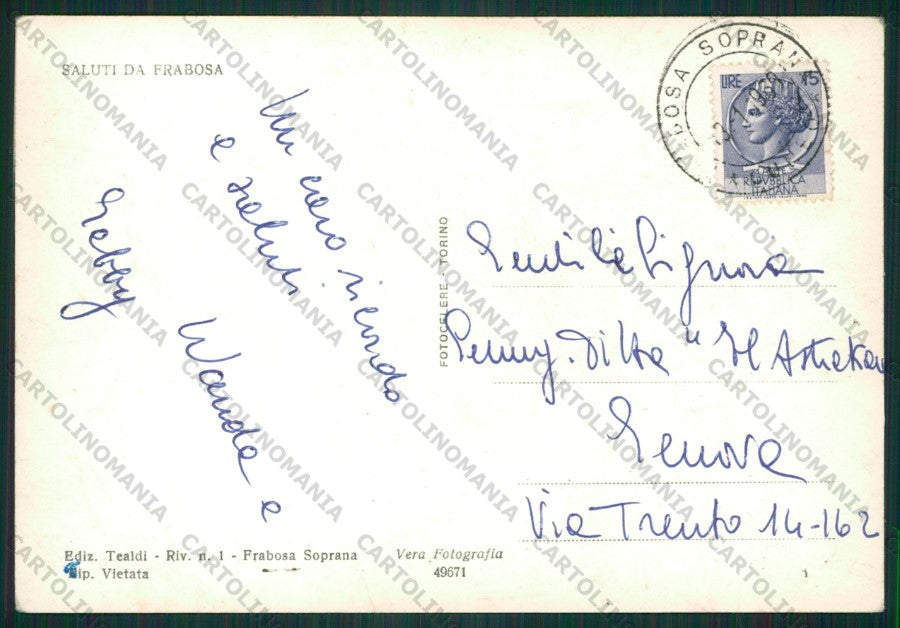 SALUTI DA FRABOSA
Un caro ricordo
e saluti
Wanda e
Gebby
FOTOCELERE - TORINO
Ediz. Tealdi - Riv. n. 1 - Frabosa Soprana
Rip. Vietata
Vera Fotografia
49671
SOPRAN
LIRE 15
REPVBBLICA
ITALIANA
Gentile Signora
Penny. Ditta "Il Astrakan
Genova
Via Trento 14-162
CARTOLINOMANIA